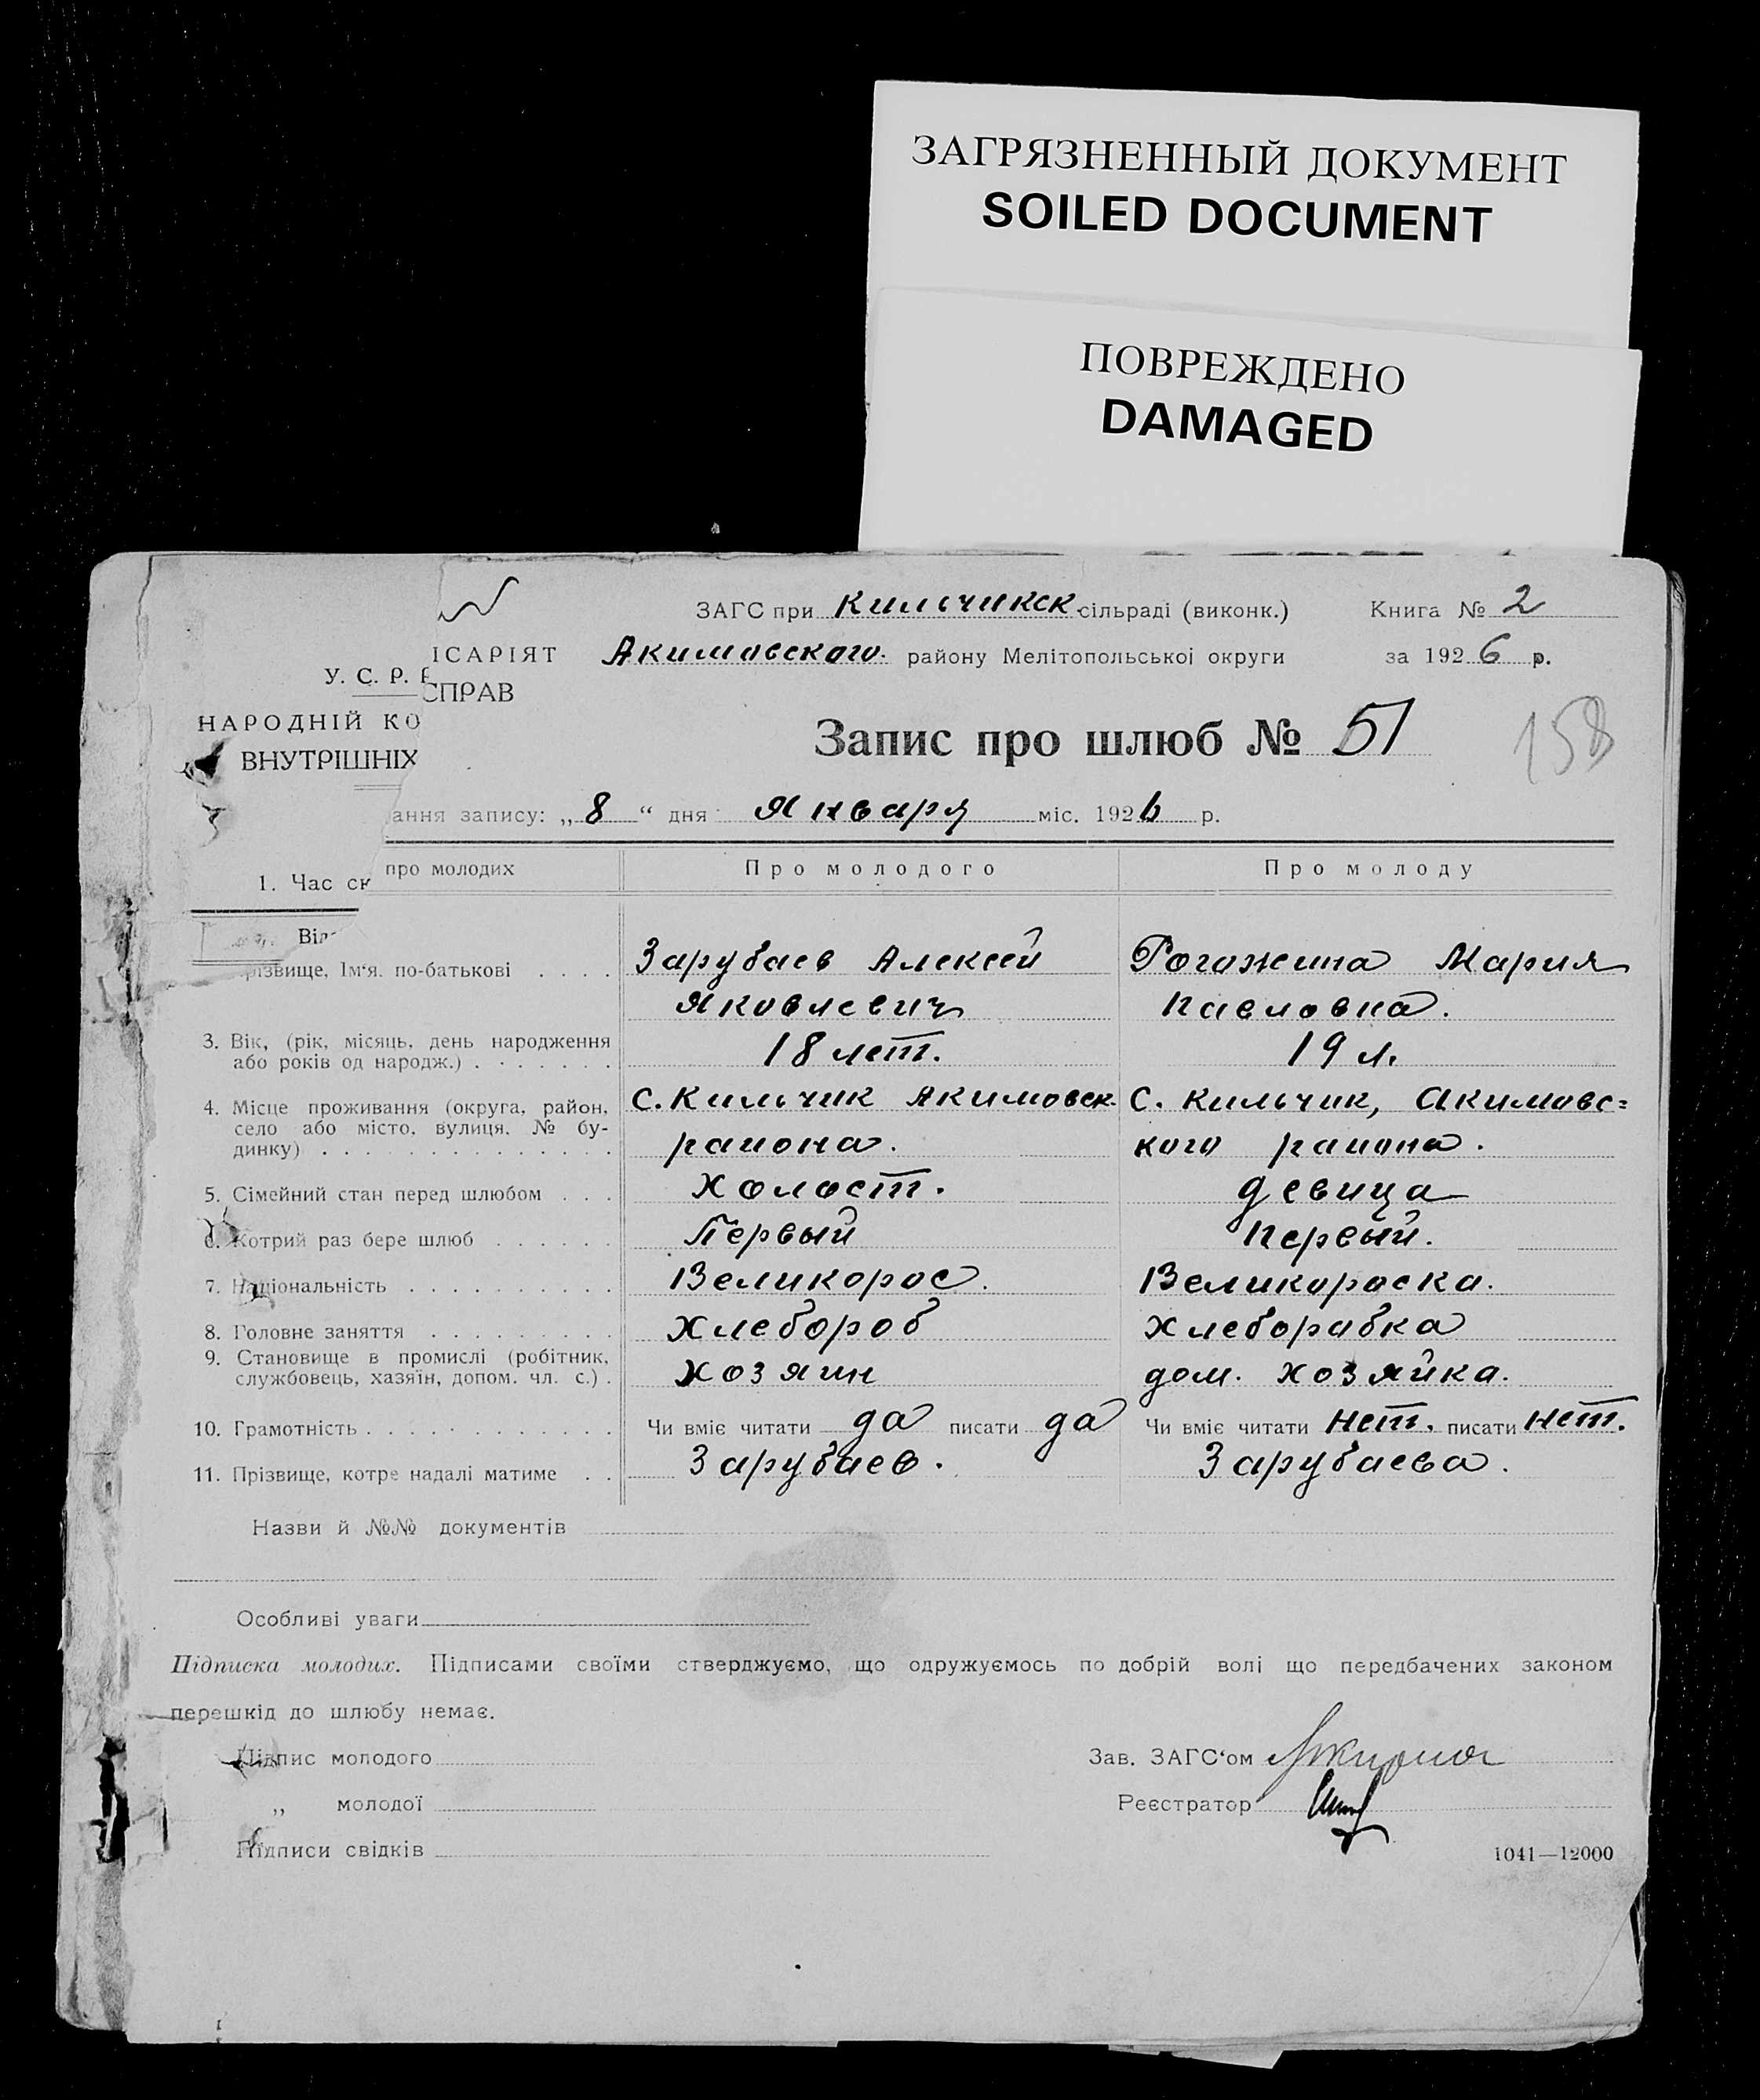 ЗАГРЯЗНЕННЫЙ ДОКУМЕНТ
SOILED DOCUMENT
ПОВРЕЖДЕНО
DAMAGED
ЗАГС при Кильчикск. сільраді (виконк.) Книга № 2
ІСАРІЯТ Акимовского. району Мелітопольської округи за 1926 р.
У. С. Р. Р
СПРАВ
НАРОДНІЙ КО
ВНУТРІШНІХ
Запис про шлюб № 51
158
ання запису: „8“ дня Января міс. 1926 р.
1. Час ск
про молодих Про молодого Про молоду
Від
різвище, Ім‘я, по-батькові . . . . Зарубаев Алексей Рогажина Мария
Яковлевич Павловна.
3. Вік, (рік, місяць, день народження
або років од народж.) . . . . . . . 18 лет. 19 л.
4. Місце проживання (округа, район, с. Кильчик Акимовск. с. Кильчик, Акимовс=
село або місто, вулиця, № бу-
динку) . . . . . . . . . . . . . . района. кого района.
5. Сімейний стан перед шлюбом . . . Холост. девица
6. Котрий раз бере шлюб . . . . . . Первый Первый.
7. Національність . . . . . . . . . . Великорос. Великороска.
8. Головне заняття . . . . . . . . . Хлебороб хлеборабка
9. Становище в промислі (робітник,
службовець, хазяїн, допом. чл. с.) . Хозяин дом. хозяйка.
10. Грамотність . . . . . . . . . . . . Чи вміє читати да писати да Чи вміє читати нет. писати нет.
11. Прізвище, котре надалі матиме . . Зарубаев. Зарубаева.
Назви й №№ документів
Особливі уваги
Підписка молодих. Підписами своїми стверджуємо, що одружуємось по добрій волі що передбачених законом
перешкід до шлюбу немає.
Підпис молодого Зав. ЗАГС‘ом
„ молодої Реєстратор
Підписи свідків
1041—12000